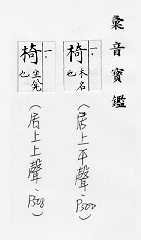 彙音寶鑑
一
椅
木名也
(居上平聲、P300)
一
椅
也
(居上上聲、P303)